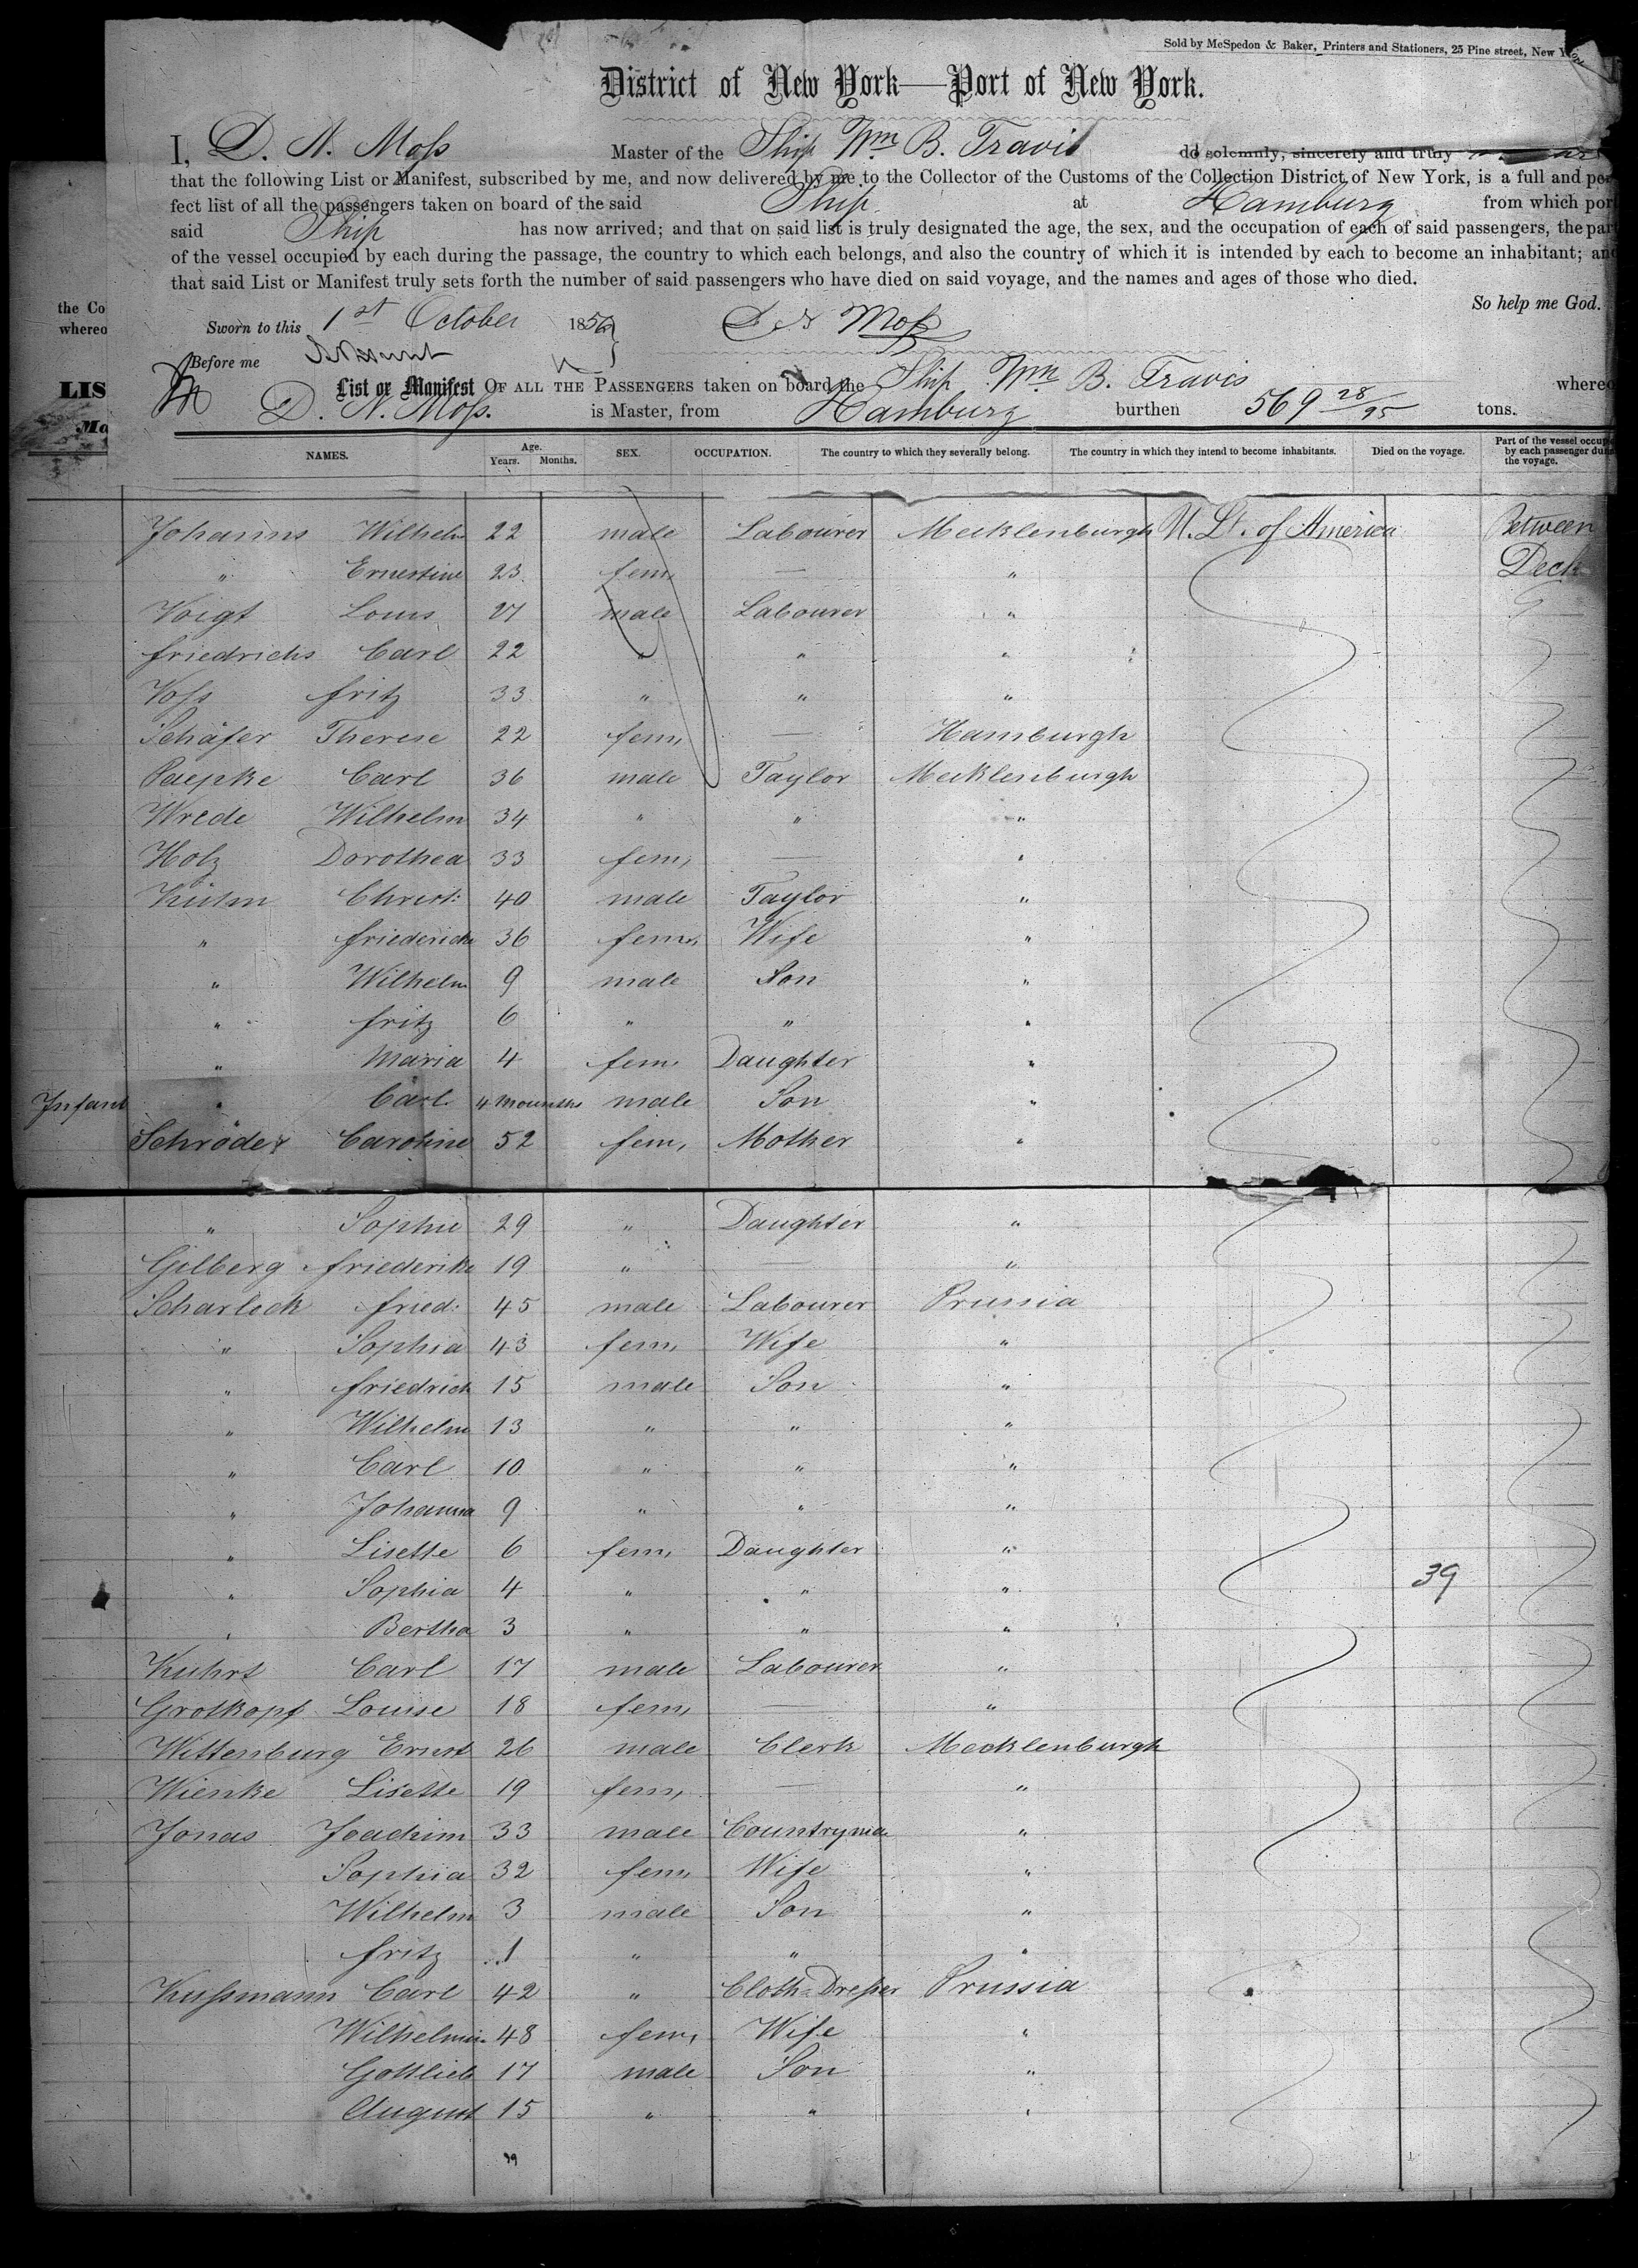 Sold by McSpedon & Baker, Printers and Stationers, 25 Pine street, New York
District of New York—Port of New York.
I, D. N. Moss Master of the Ship Wm B. Travis do solemnly, sincerely and truly
that the following List or Manifest, subscribed by me, and now delivered by me to the Collector of the Customs of the Collection District of New York, is a full and per
fect list of all the passengers taken on board of the said Ship at Hamburg from which port
said Ship has now arrived; and that on said list is truly designated the age, the sex, and the occupation of each of said passengers, the part
of the vessel occupied by each during the passage, the country to which each belongs, and also the country of which it is intended by each to become an inhabitant; and
that said List or Manifest truly sets forth the number of said passengers who have died on said voyage, and the names and ages of those who died.
So help me God.
the Co
whereo
Sworn to this 1st October 1856 D N Moss
Before me
LIS
List or Manifest OF ALL THE PASSENGERS taken on board the Ship Wm B. Travis whereo
D. N. Moss. is Master, from Hamburg burthen 569 28/95 tons.
NAMES. Age. Years. Months. SEX. OCCUPATION. The country to which they severally belong. The country in which they intend to become inhabitants. Died on the voyage. Part of the vessel occupied by each passenger during the voyage.
Johanns Wilhelm 22 male Labourer Mecklenburgh U. St. of America Between
" Ernestine 23 fem, — " Deck
Voigt Louis 27 male Labourer "
Friedrichs Carl 22 " " "
Voss Fritz 33 " " "
Schäfer Therese 22 fem, — Hamburgh
Paepke Carl 36 male Taylor Mecklenburgh
Wrede Wilhelm 34 " " "
Holz Dorothea 33 fem, — "
Kühn Christ: 40 male Taylor "
" Friedericke 36 fem, Wife "
" Wilhelm 9 male Son "
" Fritz 6 " " "
" Maria 4 fem, Daughter "
Infant " Carl 4 mounths male Son "
Schröder Caroline 52 fem, Mother "
" Sophie 29 " Daughter "
Gilberg Friederike 19 " — "
Scharleck Fried: 45 male Labourer Prussia
" Sophia 43 fem, Wife "
" Friedrich 15 male Son "
" Wilhelm 13 " " "
" Carl 10 " " "
" Johanna 9 " " "
" Lisette 6 fem, Daughter "
" Sophia 4 " " " 39
" Bertha 3 " " "
Kuhrt Carl 17 male Labourer "
Grotkopf Louise 18 fem, — "
Wittenburg Ernst 26 male Clerk Mecklenburgh
Wienke Lisette 19 fem, — "
Jonas Joachim 33 male Countryman "
Sophia 32 fem, Wife "
Wilhelm 3 male Son "
Fritz 1 " " "
Kussmann Carl 42 " Cloth=Dresser Prussia
Wilhelmin 48 fem, Wife "
Gottlieb 17 male Son "
August 15 " " "
39